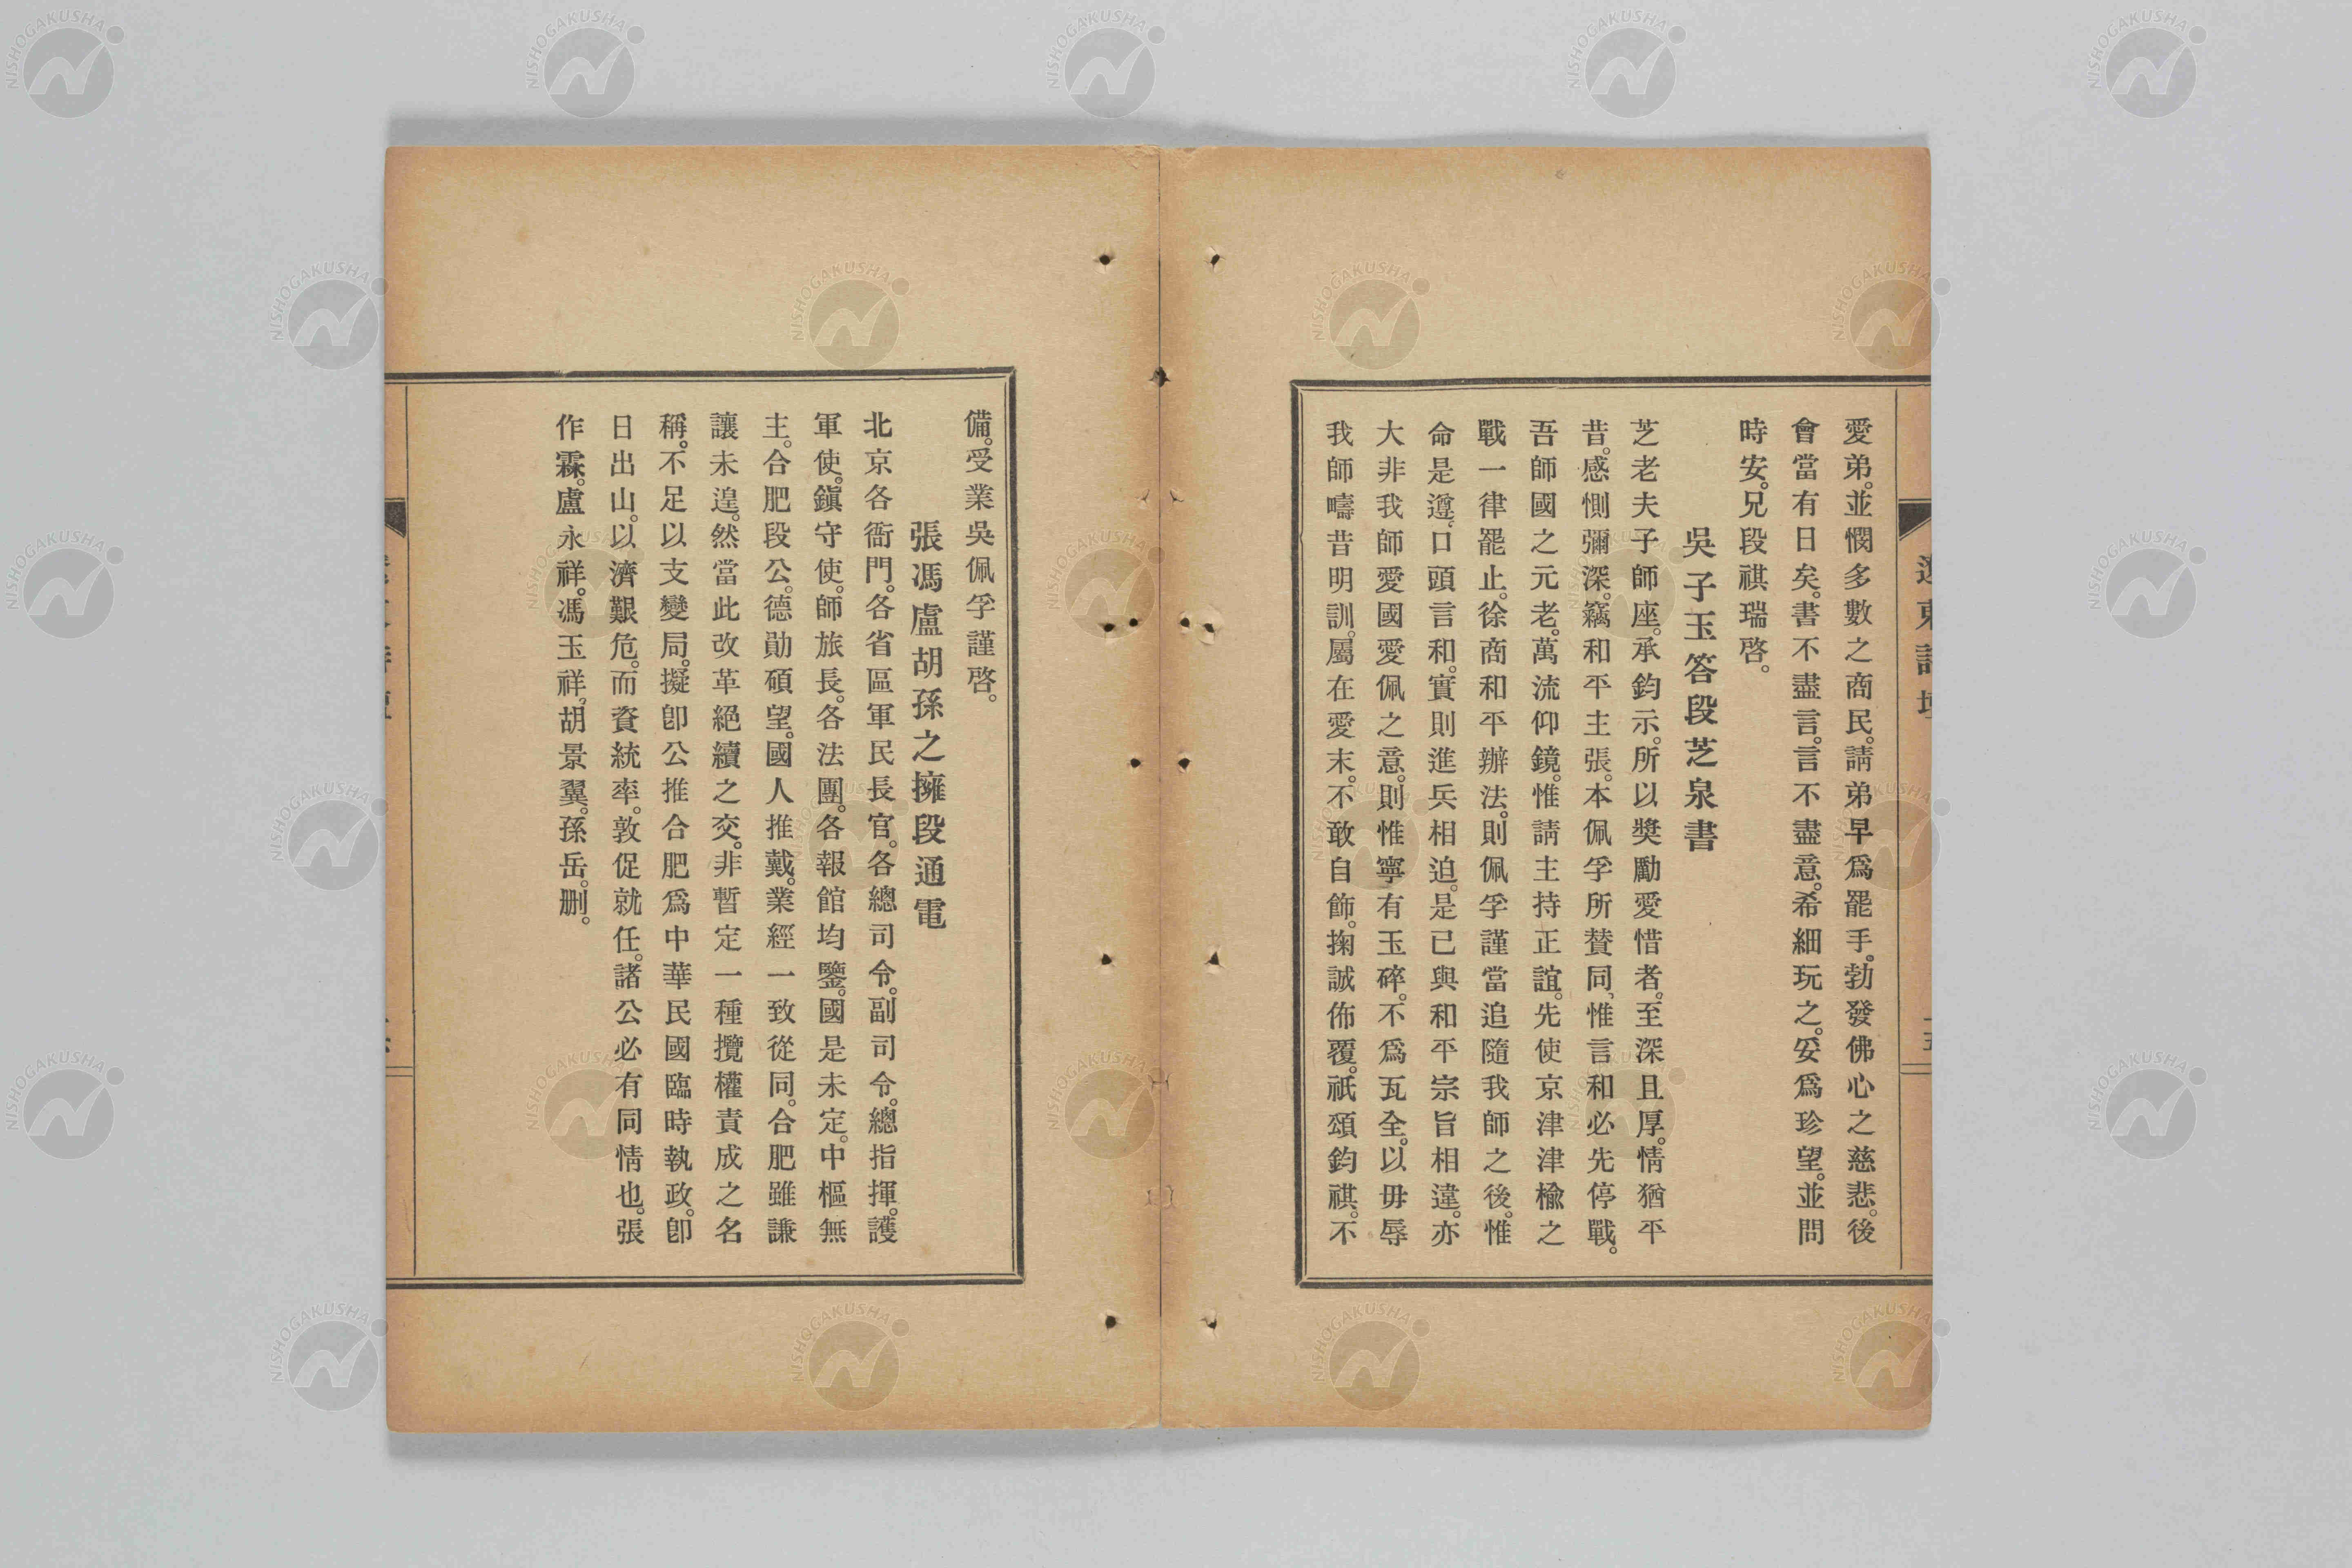 愛弟。並憫多數之商民。請弟早爲罷手。勃發佛心之慈悲。後
會當有日矣。書不盡言。言不盡意。希細玩之。妥爲珍望。並問
時安。兄段祺瑞啓。
吳子玉答段芝泉書
芝老夫子師座。承鈞示。所以獎勵愛惜者。至深且厚。情猶平
昔。感惻彌深。竊和平主張。本佩孚所贊同、惟言和必先停戰。
吾師國之元老。萬流仰鏡。惟請主持正誼。先使京津津楡之
戰一律罷止。徐商和平辦法。則佩孚謹當追隨我師之後。惟
命是遵、口頭言和。實則進兵相迫。是已與和平宗旨相違。亦
大非我師愛國愛佩之意。則惟寧有玉碎。不爲瓦全。以毋辱
我師疇昔明訓。屬在愛末。不敢自飾。掬誠佈覆。祇頌鈞祺。不
備。受業吳佩孚謹啓。
張馮盧胡孫之擁段通電
北京各衙門。各省區軍民長官。各總司令。副司令。總指揮。護
軍使。鎭守使。師旅長。各法團。各報館均鑒。國是未定。中樞無
主。合肥段公。德勛碩望。國人推戴。業經一致從同。合肥雖謙
讓未遑。然當此改革絕續之交。非暫定一種攬權責成之名
稱。不足以支變局。擬卽公推合肥爲中華民國臨時執政。卽
日出山。以濟艱危。而資統率。敦促就任。諸公必有同情也。張
作霖。盧永祥。馮玉祥、胡景翼。孫岳。刪。
NISHOGAKUSHA